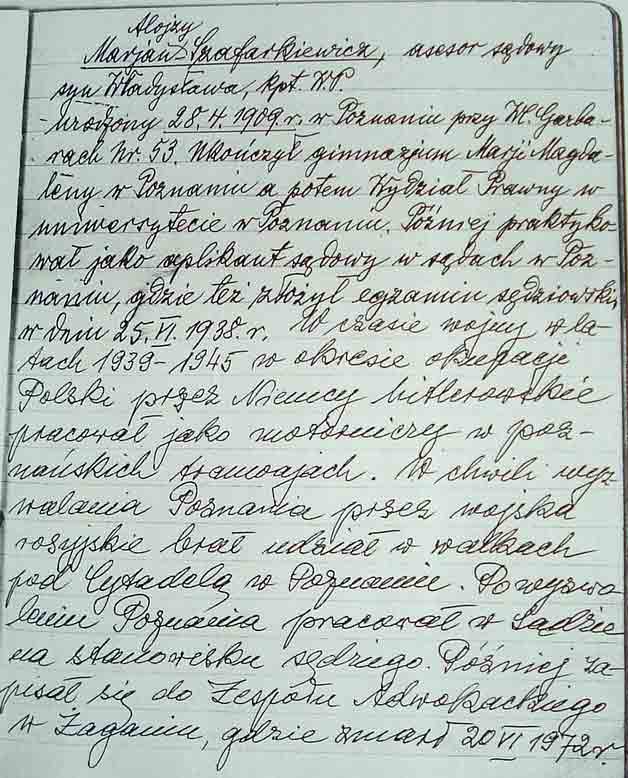 Alojzy
Marjan Szafarkiewicz, asesor sądowy
syn Władysława, kpt. W.P.
urodzony 28.4.1909.r. w Poznaniu przy Wl. Garba-
rach Nr. 53. Ukończył gimnazjum Marji Magda-
leny w Poznaniu a potem Wydział Prawny w
uniwersytecie w Poznaniu. Później praktyko
wał jako aplikant sądowy w sądach w Poz-
naniu, gdzie też złożył egzamin sędziowski,
w dniu 25.VI.1938.r. W czasie wojny w la-
tach 1939-1945 w okresie okupacji
Polski przez Niemcy hitlerowskie
pracował jako motorniczy w poz-
nańskich tramwajach. W chwili wyz
walania Poznania przez wojska
rosyjskie brał udział w walkach
pod Cytadelą w Poznaniu. Po wyzwo
leniu Poznania pracował w Sądzie
na stanowisku sędziego. Później za
pisał się do Zespołu Adwokackiego
w Żaganiu, gdzie zmarł 20 VI 1972 r.